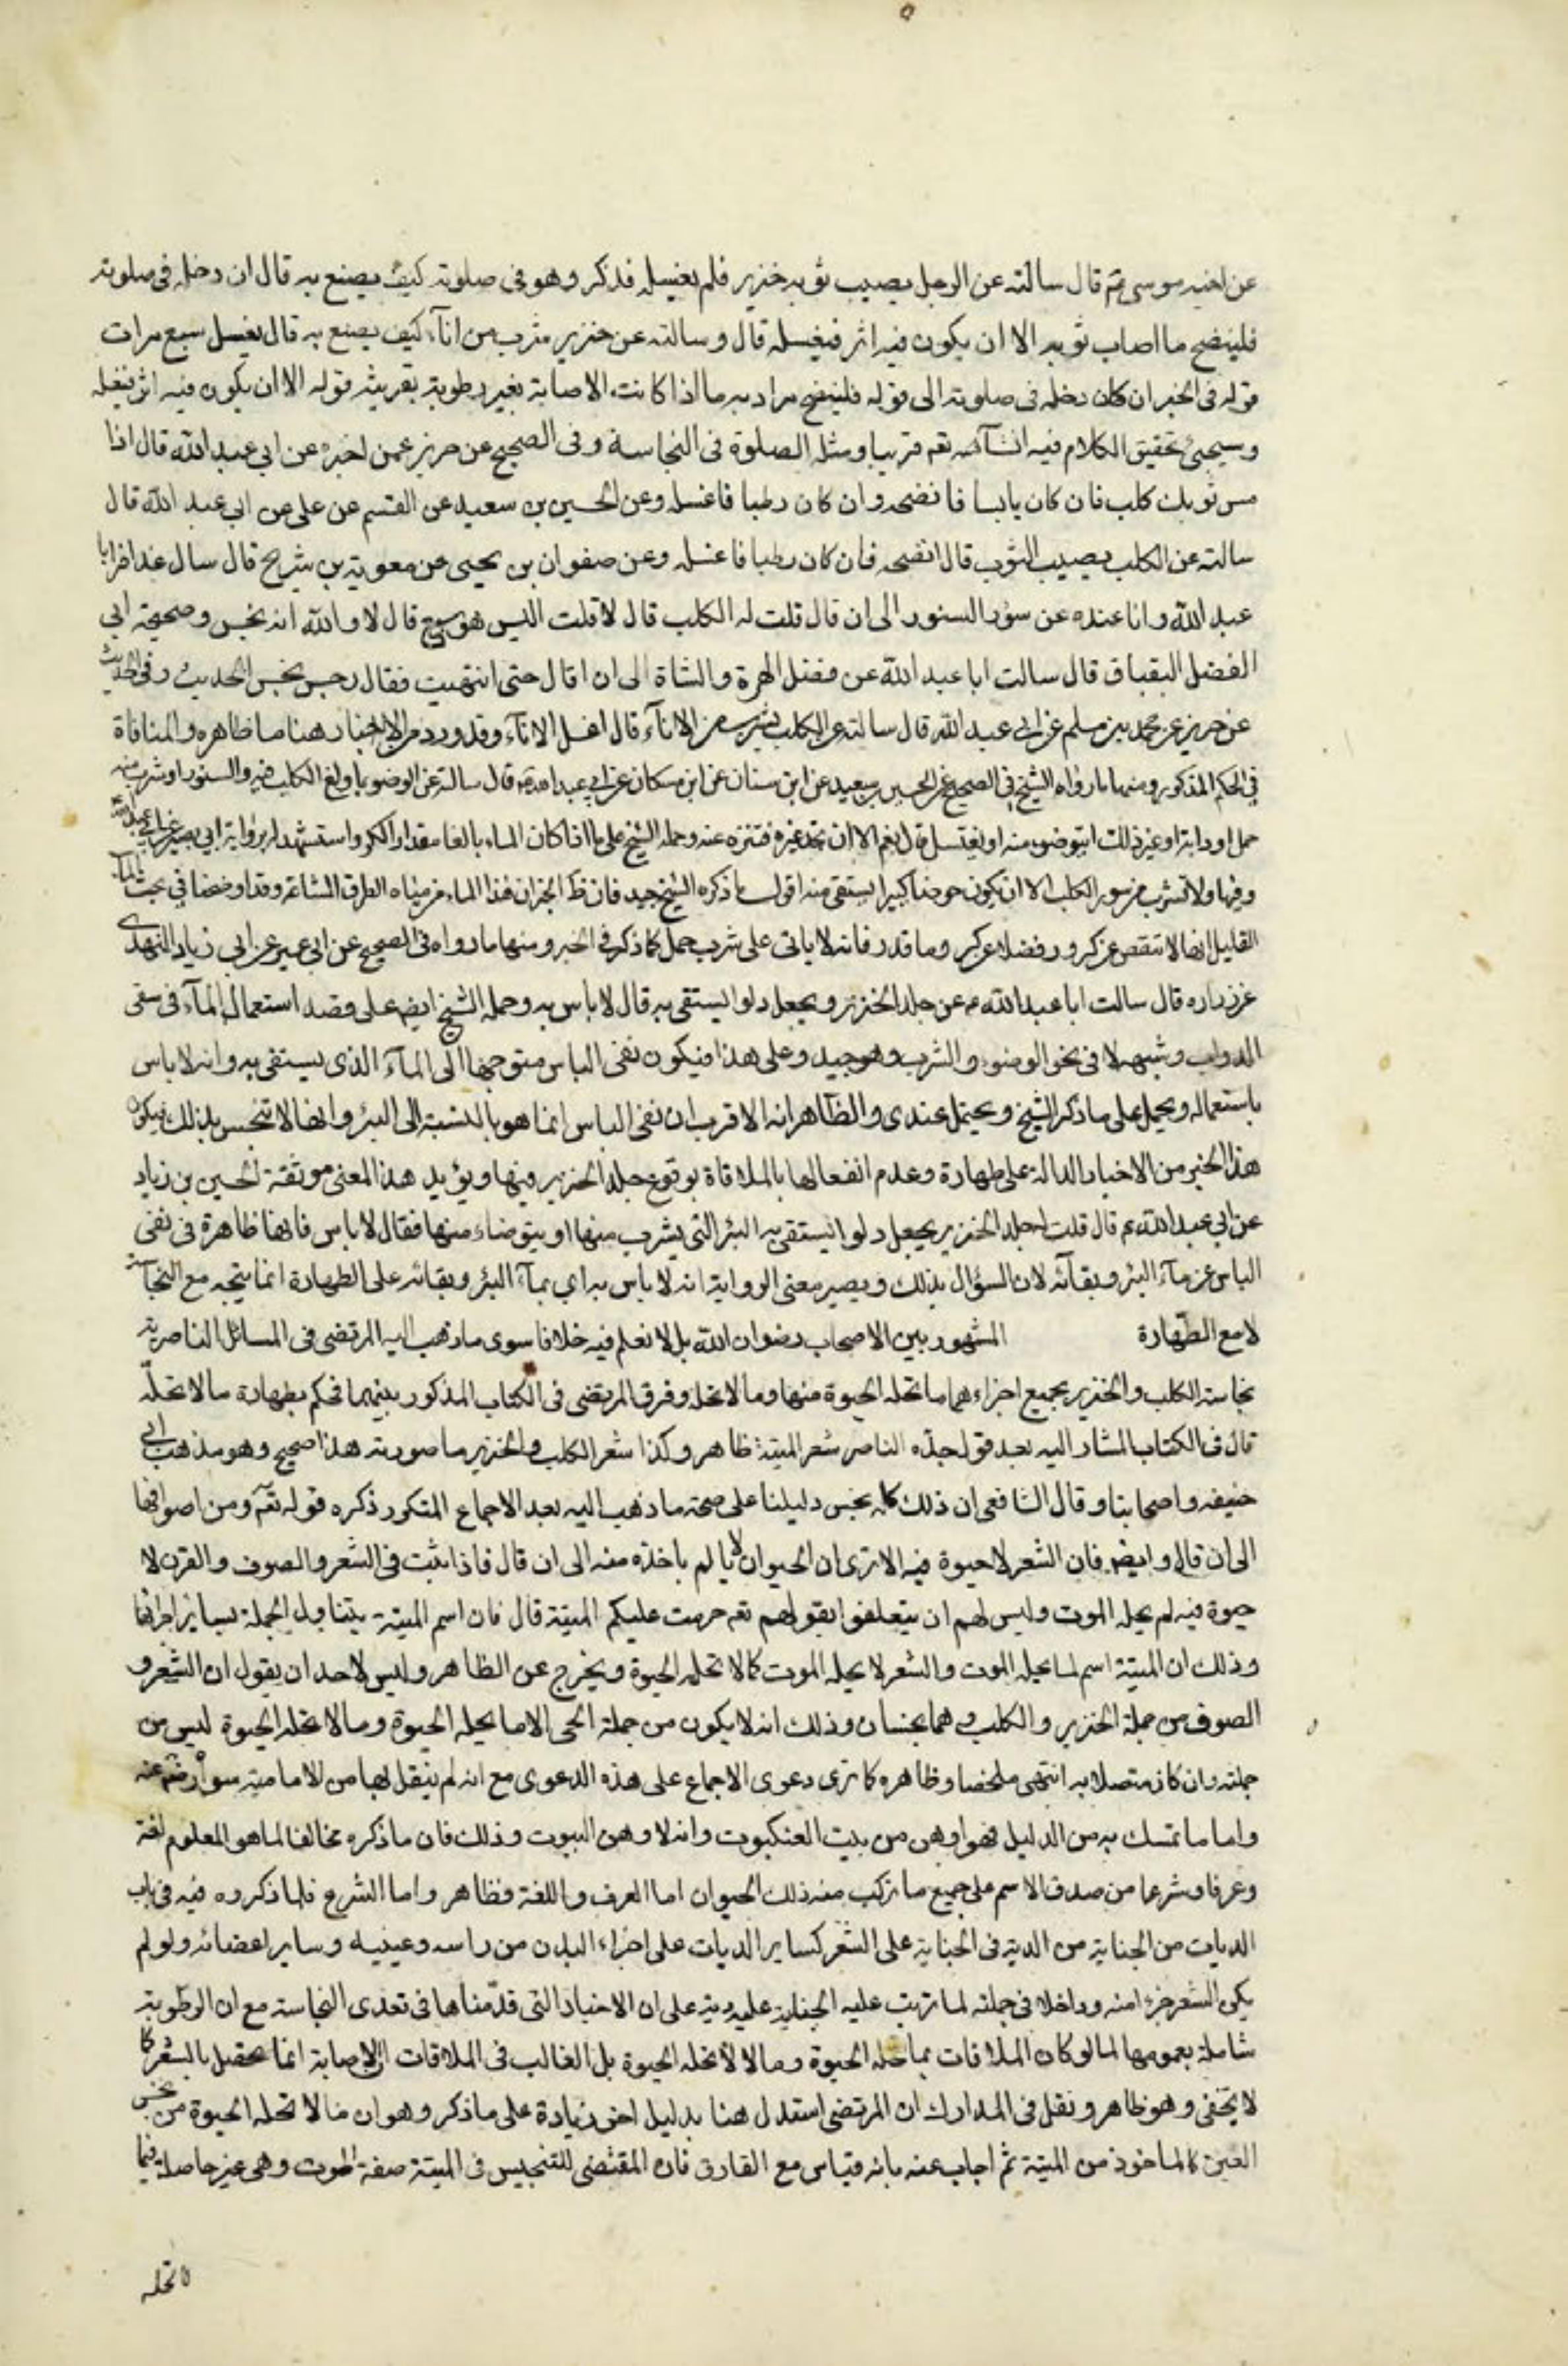 عن اخيه موسى ع قال سالته عن الرجل يصيب ثوبه خنزير فلم يغسله فذكر وهو فى صلوته كيف يصنع به قال ان دخل فى صلوته
فلينضح ما اصاب ثوبه الا ان يكون فيه اثر فيغسله قال وسالته عن خنزير شرب من انآء كيف يصنع به قال يغسل سبع مرات
قوله فى الخبر ان كان دخل فى صلوته الى قوله فلينضح مراد به ما اذا كانت الاصابة بغير رطوبة بقرينة قوله الا ان يكون فيه اثر فيغسله
وسيجئ تحقيق الكلام فيه انشآء الله تعم قريبا ومثله الصلوة فى النجاسة وفى الصحيح عن حريز عمن اخبره عن ابي عبد الله قال اذا
مس ثوبك كلب فان كان يابسا فانضحه وان كان رطبا فاغسله وعن الحسين بن سعيد عن القسم عن على عن ابى عبد الله قال
سالته عن الكلب يصيب الثوب قال انضحه فان كان رطبا فاغسله وعن صفوان بن يحيى عن معوية بن شريح قال سال عذافر ابا
عبد الله وانا عنده عن سؤر السنور الى ان قال قلت له الكلب قال لا قلت اليس هو سبع قال لا والله انه نجس وصحيحة ابى
الفضل البقباق قال سالت ابا عبد الله عن فضل الهرة والشاة الى ان قال حتى انتهيت فقال رجس نجس الحديث وفى الحديث
عن حريز عن محمد بن مسلم عن ابى عبد الله قال سالته عن الكلب يشرب من الانآء قال اغسل الانآء وقد ورد من الاخبار هنا ما ظاهره المنافاة
فى الحكم المذكور ومنها ما رواه الشيخ فى الصحيح عن الحسين بن سعيد عن ابن سنان عن ابن مسكان عن ابي عبد الله قال سالته عن الوضو بما ولغ الكلب فيه والسنور او شرب منه
جمل او دابة او غير ذلك ايتوضؤ منه او يغتسل قال نعم الا ان تجد غيره فتنزه عنه وحمله الشيخ على ما اذا كان المآء بالغا مقدار الكر واستشهد له برواية ابي بصير عن ابي عبد الله
وفيها ولا تشرب من سور الكلب الا ان يكون حوضا كبيرا يستقى منه اقول ما ذكره الشيخ جيد فان ظ الخبر ان هذا المآء من مياه الطرق الشائعة وقد اوضحنا فى بحث المآء
القليل انها لا تنقص عن كر ور فضلا عن كر وما قدر فانه لا ياتى على شرب جمل كما ذكر فى الخبر ومنها ما رواه فى الصحيح عن ابى عمير عن ابي زياد النهدى
عن زراره قال سالت ابا عبد الله ع عن جلد الخنزير ويجعل دلوا يستقى به قال لا باس به وحمله الشيخ ايضم على قصد استعمال المآء فى سقى
الدواب وشبهه لا فى نحو الوضوء والشرب وهو جيد وعلى هذا فيكون نفى الباس متوجها الى المآء الذى يستقى به وانه لا باس
باستعماله ويحمل على ما ذكر الشيخ ويحتمل عندى والظاهر انه الاقرب ان نفى الباس انما هو بالنسبة الى البئر وانها لا تنجس بذلك فيكون
هذا الخبر من الاخبار الدالة على طهارة وعدم انفعالها بالملاقاة بوقوع جلد الخنزير فيها ويؤيد هذا المعنى موثقة الحسين بن زياد
عن ابي عبد الله ع قال قلت جلد الخنزير يجعل دلوا يستقى به البئر التى يشرب منها او يتوضاء منها فقال لا باس فانها ظاهرة فى نفى
الباس عن مآء البئر وبقآئه لان السؤال بذلك ويصير معنى الرواية انه لا باس به اي بمآء البئر وبقائه على الطهارة انما يتجه مع النجاسة
لا مع الطهارة المشهور بين الاصحاب رضوان الله بل لا نعلم فيه خلافا سوى ما ذهب اليه المرتضى فى المسائل الناصرية
نجاسة الكلب والخنزير بجميع اجزاءهما ما تحله الحيوة منها وما لا تحله وفرق المرتضى فى الكتاب المذكور بينهما فحكم بطهارة ما لا تحله
قال فى الكتاب المشار اليه بعد قول جده الناصر شعر الميتة ظاهر وكذا شعر الكلب والخنزير ما صورته هذا صحيح وهو مذهب ابى
حنيفه واصحابنا وقال الشافعى ان ذلك كله نجس دليلنا على صحة ما ذهب اليه بعد الاجماع المتكرر ذكره قوله تعم ومن اصوافها
الى ان قال وايضم فان الشعر لا حيوة فيه الا ترى ان الحيوان لا يالم باخذه منه الى ان قال فاذا ثبت فى الشعر والصوف والقرن لا
حيوة فيه لم يحله الموت وليس لهم ان يتعلقوا بقولهم تعم حرمت عليكم الميتة قال فان اسم الميتة يتناول الجملة بساير اجزائها
وذلك ان الميتة اسم لما يحله الموت والشعر لا يحله الموت كما لا تحله الحيوة ويخرج عن الظاهر وليس لاحد ان يقول ان الشعر و
الصوف من جملة الخنزير والكلب وهما نجسان وذلك انه لا يكون من جملة الحى الا ما يحله الحيوة وما لا تحله الحيوة ليس من
جملته وان كان متصلا به انتهى ملخصا وظاهره كما ترى دعوى الاجماع على هذه الدعوى مع انه لم ينقل بها من الامامية سواه رضى عنه
واما ما تمسك به من الدليل فهو اوهى من بيت العنكبوت وانه لاوهن البيوت وذلك فان ما ذكره مخالف لما هو المعلوم لغة
وعرفا وشرعا من صدق الاسم على جميع ما تركب منه ذلك الحيوان اما العرف واللغة فظاهر واما الشرع فلما ذكروه فيه فى باب
الديات من الجناية من الدية فى الجناية على الشعر كساير الديات على اجزاء البدن من راسه وعينيه وساير اعضائه ولو لم
يكن الشعر جزءا منه وداخلا فى جملته لما ترتب عليه الجناية عليه دية على ان الاخبار التى قدمناها فى تعدى النجاسة مع ان الرطوبة
شاملة بعمومها لما لو كان الملاقات بما تحله الحيوة وما لا تحله الحيوة بل الغالب فى الملاقات ان الاصابة انما تحصل بالشعر كما
لا يخفى وهو ظاهر ونقل فى المدارك ان المرتضى استدل هنا بدليل اخر زيادة على ما ذكر وهو ان ما لا تحله الحيوة من نجس
العين كالماخوذ من الميتة ثم اجاب عنه بانه قياس مع الفارق فان المقتضى للتنجيس فى الميتة صفة الموت وهى غير حاصلة فيما
لا تحله